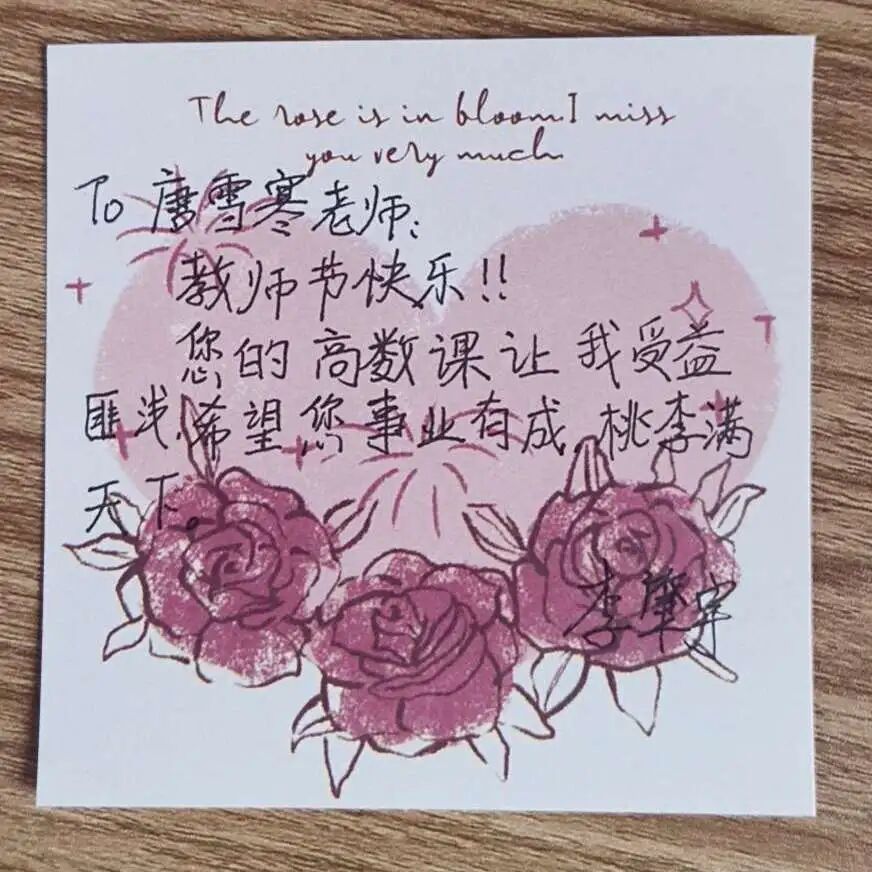 The rose is in bloom.I miss
you very much.
To 唐雪寒老师:
教师节快乐!!
您的高数课让我受益
匪浅,希望您事业有成,桃李满
天下。
李肇宇